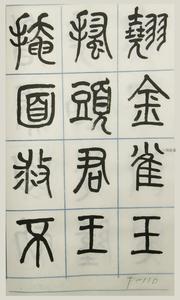 翹金雀玉
搔頭君王
掩面救不